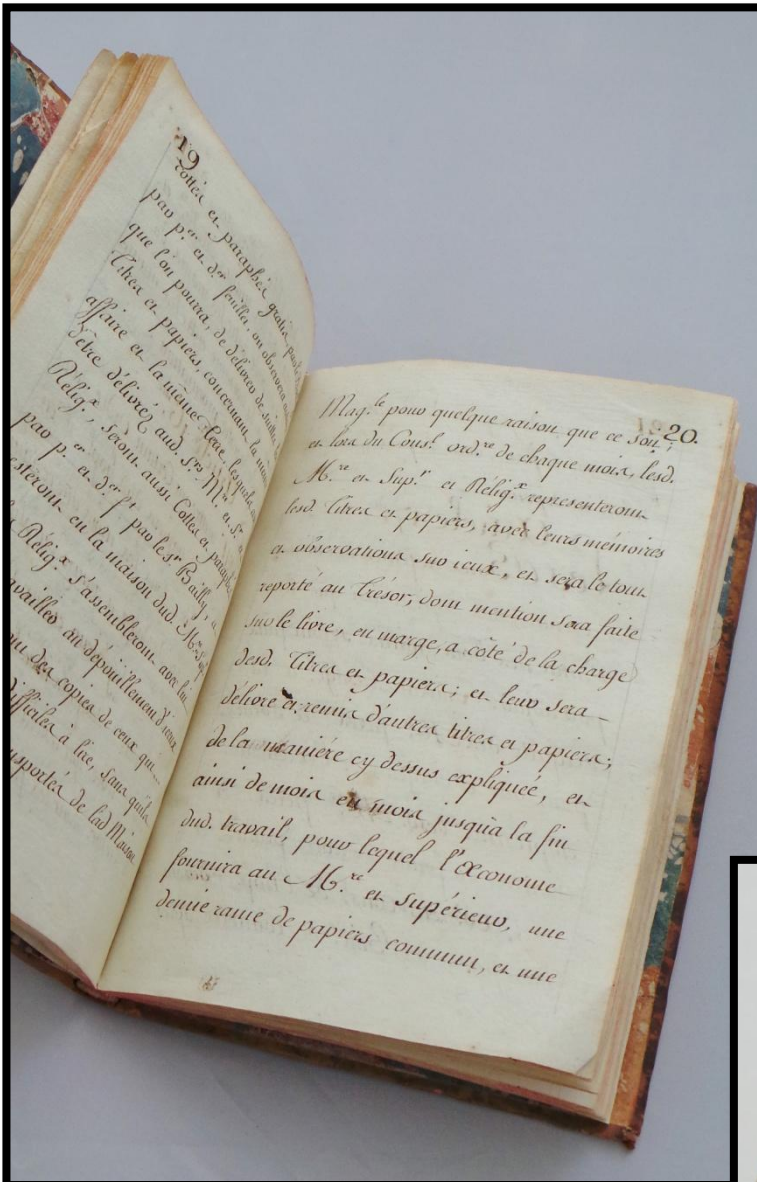 19
Cottés et paraphés gratis par le
par p.er et d.er feuillet, on observera
que l'on pourra, de délivrer de suitte
titres et papiers, concernant la même
affaire et la même Terre, lesquels
d'être délivrés aud. S.rs M.re et S.r
Relig.x, seront aussi Cottés et paraphés
par p.er et d.er f.t par le S.r Bailly,
resteront en la maison dud. M.re Sup.r
Relig.x s'assembleront avec lui
travailler au dépouillement d'iceux
des copies de ceux qui
difficiles à lire, sans qu'ils
transportés de lad Maison
20.
Mag.le pour quelque raison que ce soit;
et lors du Cons.l ord.re de chaque mois, lesd.
M.re et Sup.r et Relig.x representeront
lesd. titres et papiers, avec leurs mémoires
et observations sur iceux, et sera le tout
reporté au Trésor, dont mention sera faite
sur le livre, en marge, a coté de la charge
desd. Titres et papiers; et leur sera
délivré et remis d'autres titres et papiers;
de la maniére cy dessus expliquée, et
ainsi de mois en mois jusqu'a la fin
dud. travail, pour lequel l'Œconome
fournira au M.re et Supérieur, une
demie rame de papiers commun, et une